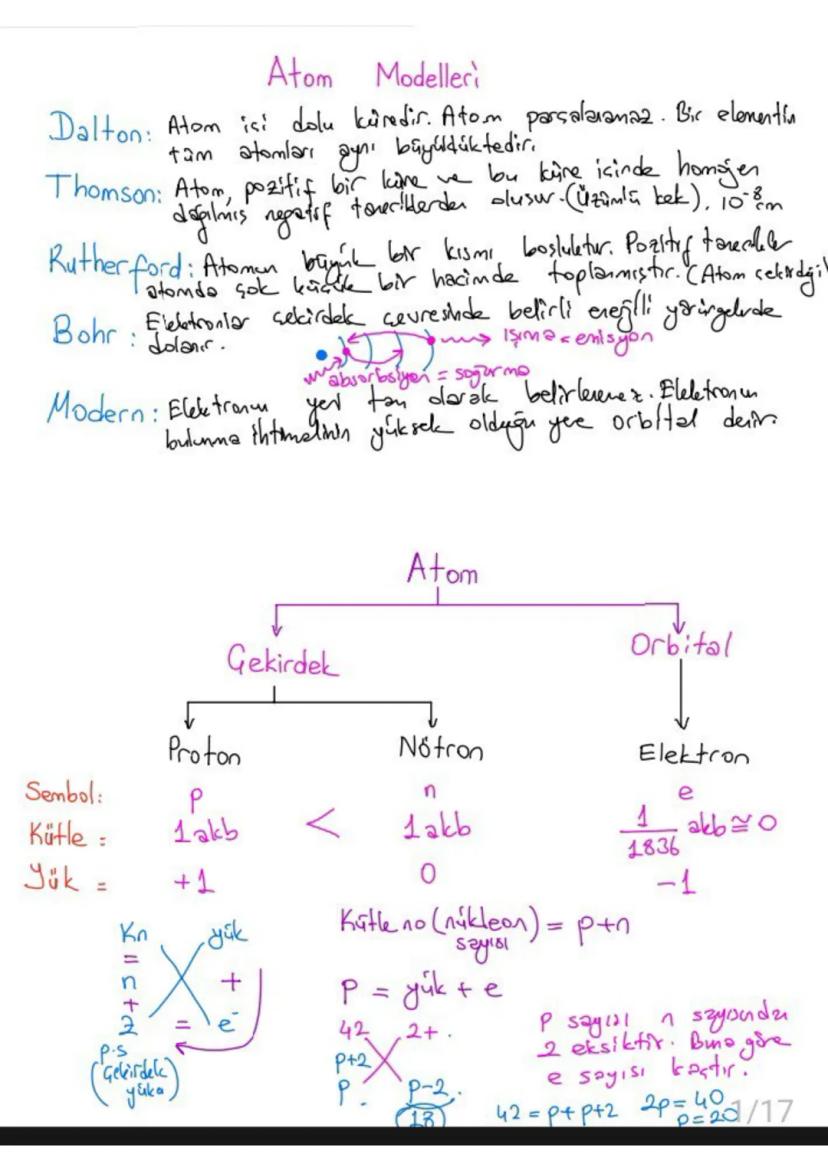 Atom Modelleri
Dalton: Atom içi dolu küredir. Atom parçalanamaz. Bir elementin
tüm atomları aynı büyüklüktedir.
Thomson: Atom, pozitif bir küre ve bu küre içinde homojen
dağılmış negatif taneciklerden oluşur. (Üzümlü kek). 10⁻⁸ cm
Rutherford: Atomun büyük bir kısmı boşluktur. Pozitif tanecikler
atomda çok küçük bir hacimde toplanmıştır. (Atom çekirdeği)
Bohr: Elektronlar çekirdek çevresinde belirli enerjili yörüngelerde
dolanır.
Işıma = emisyon
absorbsiyon = soğurma
Modern: Elektronun yeri tam olarak belirlenemez. Elektronun
bulunma ihtimalinin yüksek olduğu yere orbital denir.
Atom
Çekirdek Orbital
Proton Nötron Elektron
Sembol: p n e
Kütle = 1 akb < 1 akb 1/1836 akb ≅ 0
Yük = +1 0 -1
Kn yük
=
n +
+
Z = e⁻
p.s
(Çekirdek
yükü)
Kütle no (nükleon sayısı) = p+n
p = yük + e
42 2+
p+2
p p-2
18
p sayısı n sayısından
2 eksiktir. Buna göre
e sayısı kaçtır.
42 = p+p+2 2p=40
p=20
1/17